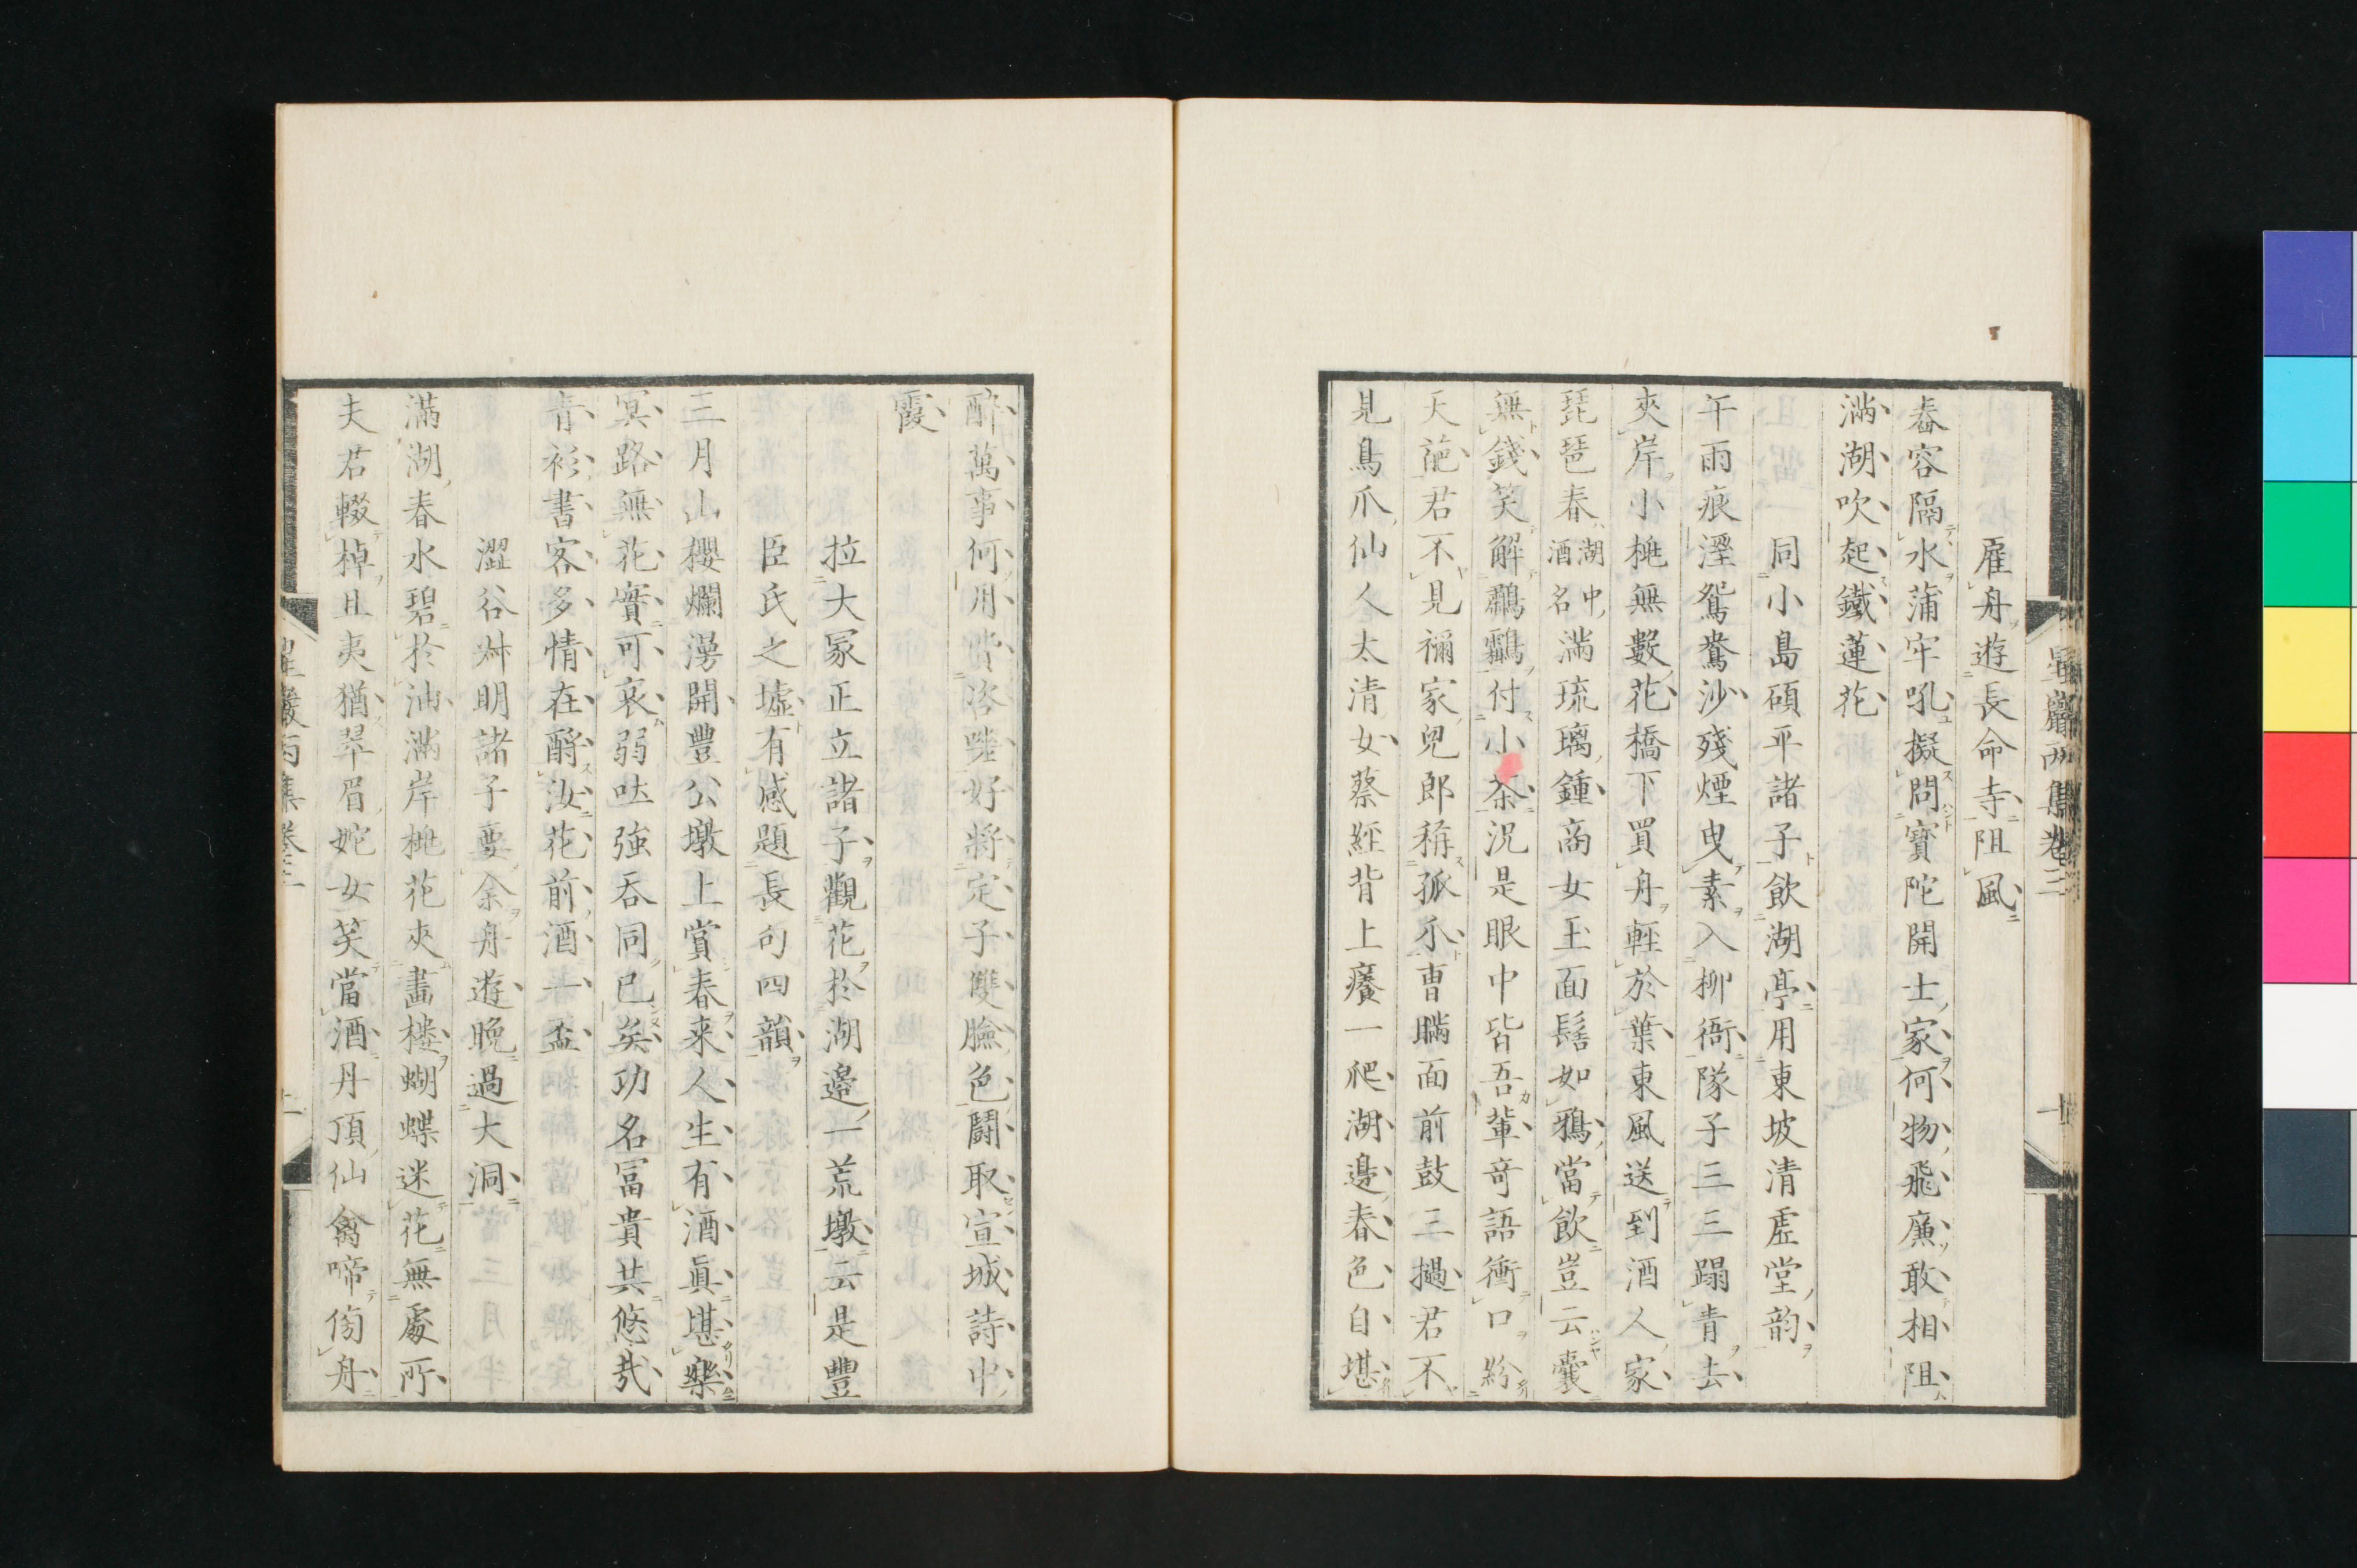 雇舟遊長命寺阻風
春容隔水蒲牢吼擬問寶陀開士家何物飛廉敢相阻
滿湖吹起鐵蓮花
同小島碩平諸子飲湖亭用東坡清虛堂韵
午雨痕溼鴛鴦沙殘煙曳素入柳衙隊子三三蹋青去
夾岸小桃無數花橋下買舟輕於葉東風送到酒人家
琵琶春湖中酒名滿琉璃鍾商女玉面髻如鴉當飲豈云囊
無錢笑解鸘付小茶況是眼中皆吾輩奇語衝口紛
天葩君不見禰家兒郎稱孤禾曹瞞面前鼓三撾君不
見鳥爪仙人太清女蔡經背上癢一爬湖邊春色自堪
醉萬事何用皆咨嗟好將定子雙臉色鬪取宣城詩中
霞
拉大冢正立諸子觀花於湖邊一荒墩云是豐
臣氏之墟有感題長句四韻
三月山櫻爛漫開豐公墩上賞春来人生有酒眞堪樂
冥路無花實可哀弱呿強吞同已矣功名冨貴共悠哉
青衫書客多情在酹汝花前酒一盃
澀谷艸明諸子要余舟遊晚過大洞
滿湖春水碧於油滿岸桃花夾畫樓蝴蝶迷花無處所
夫君輟棹且夷猶翠眉姹女笑當酒丹頂仙禽啼傍舟
星巖丙集卷三